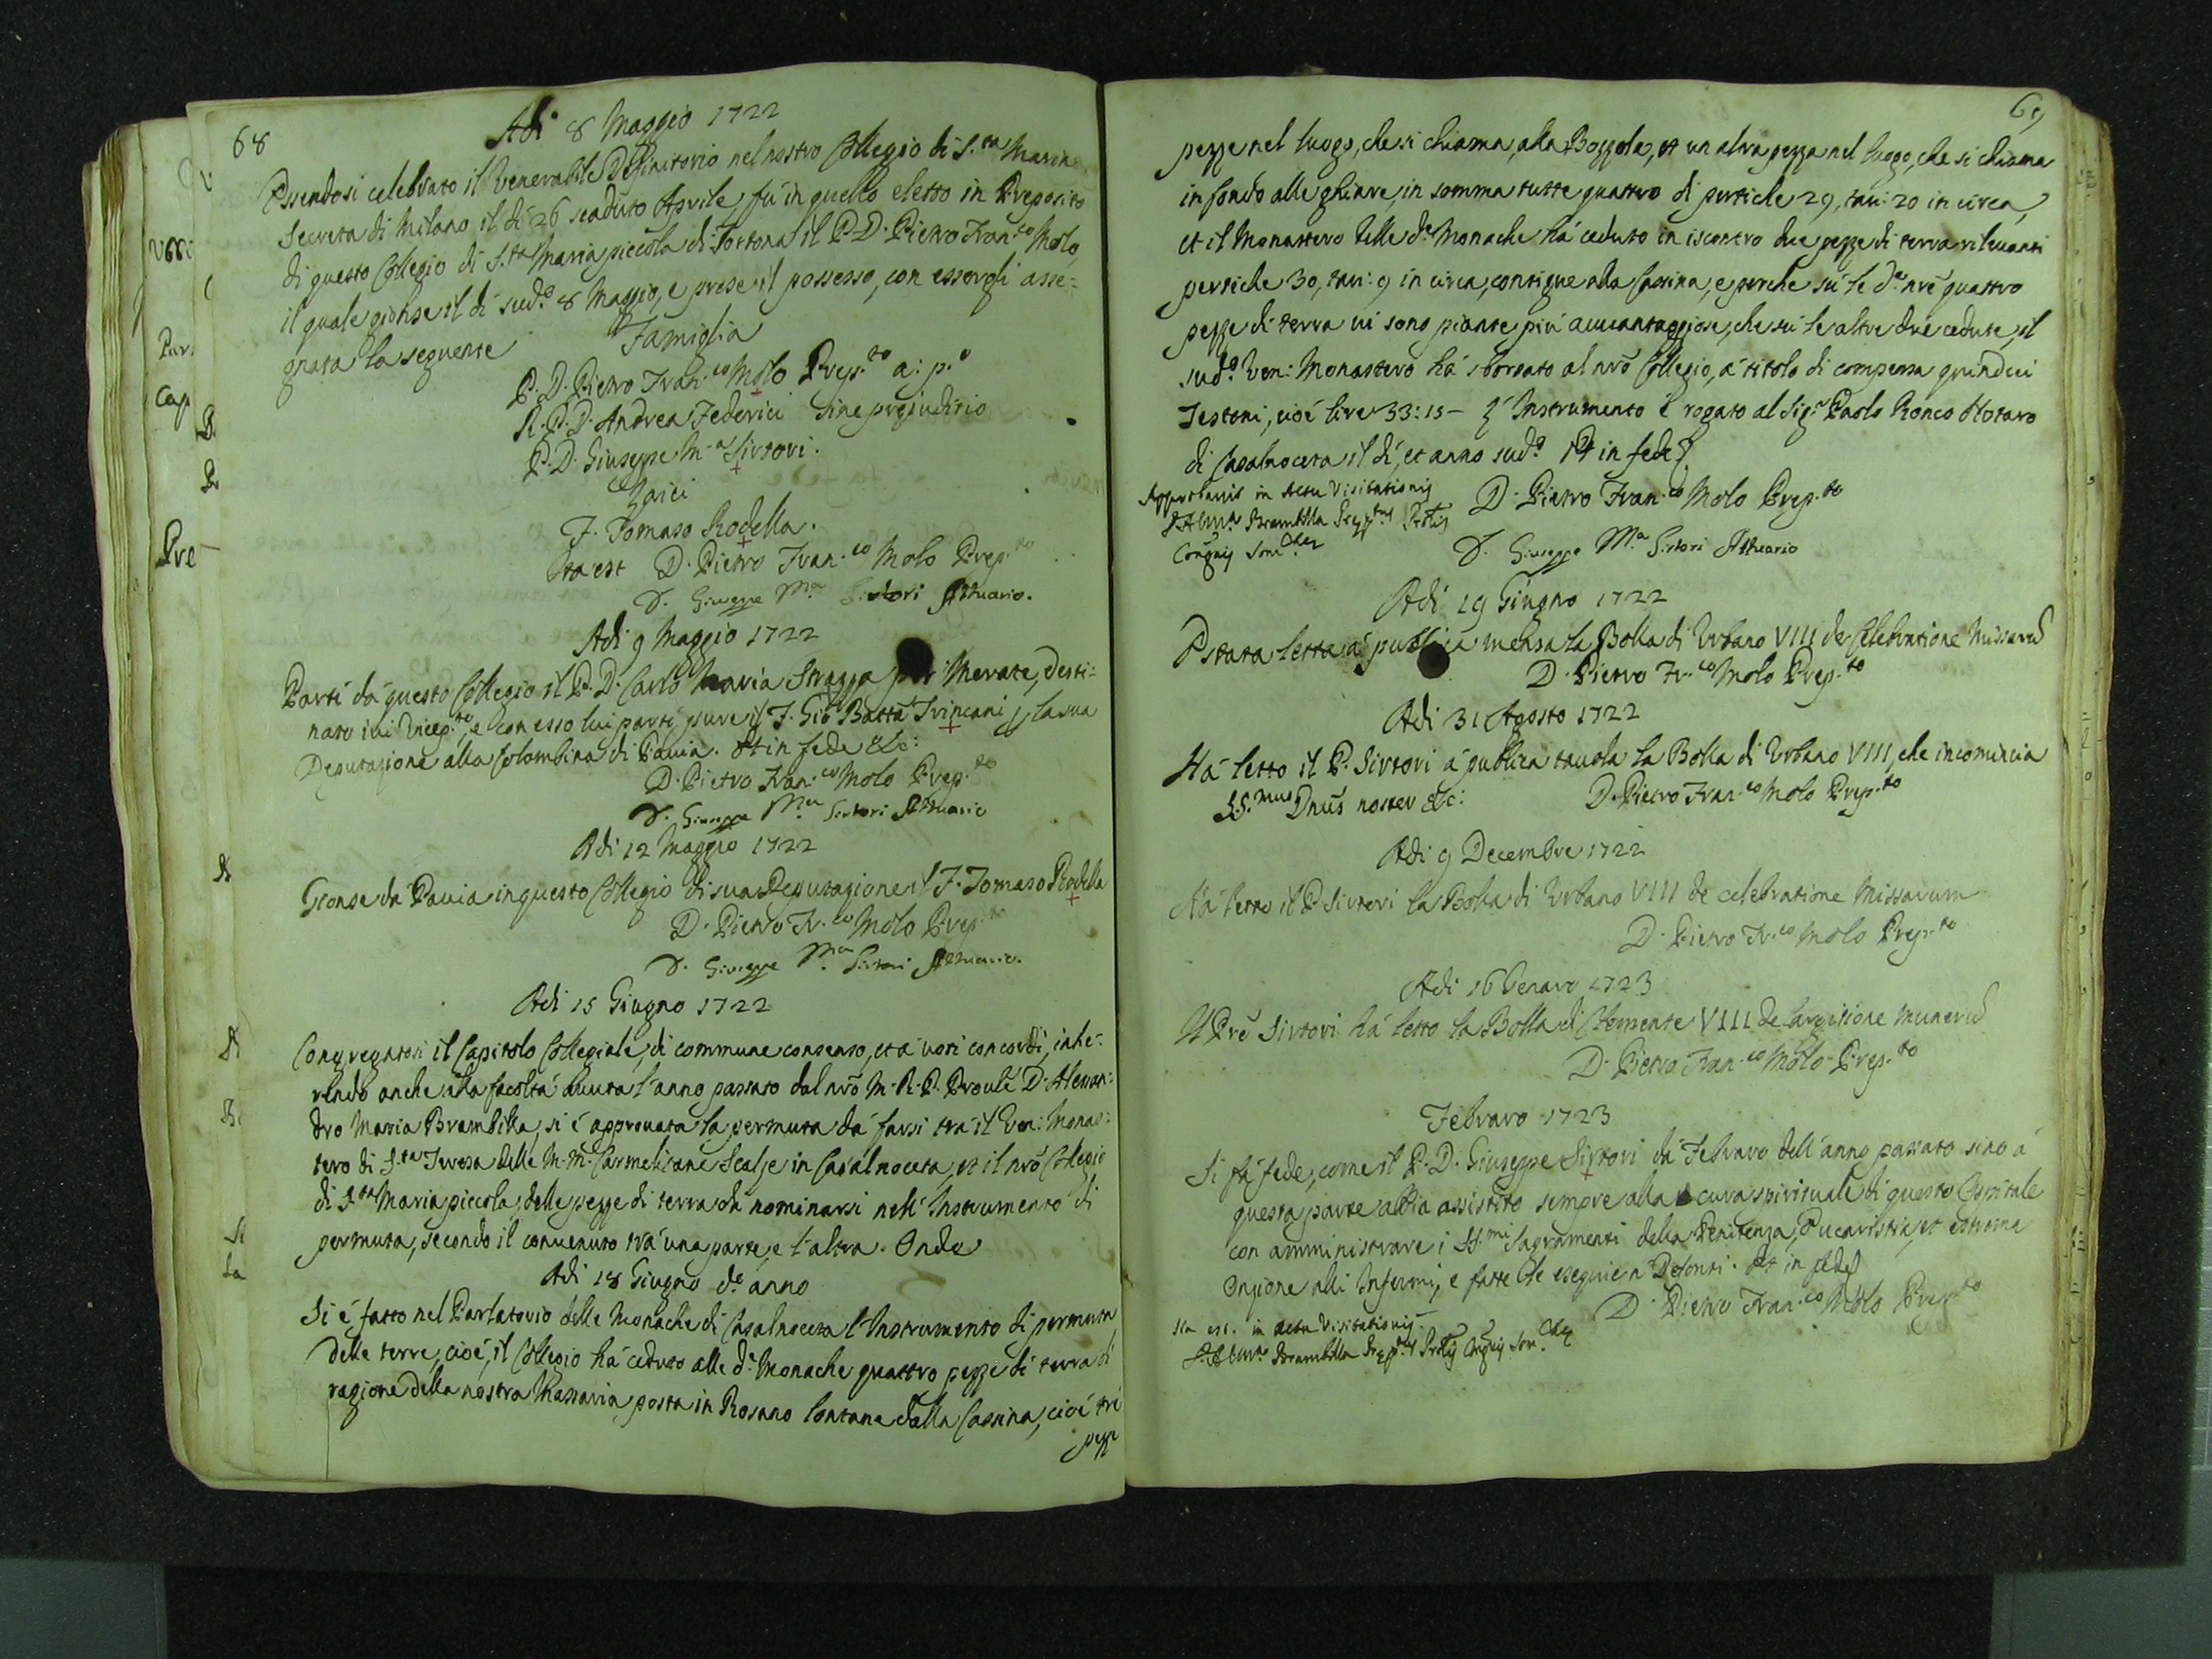 68
Adi 8 Maggio 1722
Essendosi celebrato il Venerabile Definitorio nel nostro Collegio di S.ta Maria
Secreta di Milano il dì 26 scaduto Aprile, fù in quello eletto in Preposito
di questo Collegio di S.ta Maria piccola di Tortona il P. D. Pietro Fran.co Molo,
il quale gionse il dì sud.o 8 Maggio, e prese il possesso, con essergli asse=
gnata la seguente
Famiglia
P. D. Pietro Fran.co Molo Prep.to a: p.o
R. P. D. Andrea Federici sine prejuditio
P. D. Giuseppe M.a Sirtori.
Laici
F. Tomaso Rodella.
Ita est D. Pietro Fran.co Molo Prep.to
D. Giuseppe M.a Sirtori Attuario.
Adi 9 Maggio 1722
Partì dà questo Collegio il P. D. Carlo Maria Strazza per Merate, desti=
nato ivi Vicep.to, e con esso lui partì pure il F. Gio Batta Trincani p la sua
Deputazione alla Colombina di Pavia. Et in fede &c:
D. Pietro Fran.co Molo Prep.to
D. Giuseppe M.a Sirtori Attuario
Adi 12 Maggio 1722
Gionse da Pavia in questo Collegio di sua Deputazione il F. Tomaso Rodella
D. Pietro Fr.co Molo Prep.to
D. Giuseppe M.a Sirtori Attuario.
Adi 15 Giugno 1722
Congregatosi il Capitolo Collegiale, di commune consenso, et à voti concordi, inhe=
rendo anche alla facoltà havuta l'anno passato dal nrõ M. R. P. Proule D. Alessan=
dro Maria Brambilla, si è approvata la permuta dà farsi trà il Ven: Monas=
tero di S.ta Teresa delle M. M. Carmelitane Scalze in Casalnoceta, et il nrõ Collegio
di S.ta Maria piccola, delle pezze di terra da nominarsi nell' Instrumento di
permuta, secondo il convenuto trà una parte, e l'altra. Onde
Adi 18 Giugno d.o anno
Si è fatto nel Parlatorio delle Monache di Casalnoceta l'Instrumento di permuta
delle terre, cioè, il Collegio hà ceduto alle d.e Monache quattro pezze di terra di
ragione della nostra Massaria posta in Rosano lontana dalla Cassina, cioè trè
pezze
69
pezze nel luogo, che si chiama, alla Bozzola, et un altra pezza nel luogo, che si chiama
in fondo alle ghiare, in somma tutte quattro di pertiche 29, tav: 20 in circa,
et il Monastero delle d.e Monache hà ceduto in iscontro due pezze di terra rilevanti
pertiche 30, tav: 9 in circa, contigue alla Cassina, e perche sù le d.e nrẽ quattro
pezze di terra vi sono piante più avvantaggiose, che sù le altre due cedute, il
sud.o Ven: Monastero hà sborsato al nrõ Collegio, à titolo di compensa quindeci
Testoni, cioè lire 33:15 - L'Instrumento è rogato al Sig.r Paolo Ronco Notaro
di Casalnoceta il dì, et anno sud.o Et in fede
Approbavit in Actu Visitationis
D. Pietro Fran.co Molo Prep.to
D. Giuseppe M.a Sirtori Attuario
Adi 19 Giugno 1722
È stata letta à publica mensa la Bolla di Urbano VIII de Celebratione Missarũ
D. Pietro Fr.co Molo Prep.to
Adi 31 Agosto 1722
Hà letto il P. Sirtori à publica tavola la Bolla di Urbano VIII, che incomincia
SS.mus Dnus noster &c:
D. Pietro Fran.co Molo Prep.to
Adi 9 Decembre 1722
Hà letto il P. Sirtori la Bolla di Urbano VIII de celebratione Missarum
D. Pietro Fr.co Molo Prep.to
Adi 16 Genaro 1723
Il Prẽ Sirtori hà letto la Bolla di Clemente VIII de largitione munerũ
D. Pietro Fran.co Molo Prep.to
Febraro 1723
Si fà fede, come il P. D. Giuseppe Sirtori dà Febraro dell' anno passato sino à
questa parte abbia assistito sempre alla cura spirituale di questo Ospitale
con amministrare i SS.mi Sagramenti della Penitenza, Eucaristia, et estrema
Onzione alli Infermi, e fatte le esequie a' Defonti. Et in fede
D. Pietro Fran.co Molo Prep.to
Ita est. in Actu Visitationis